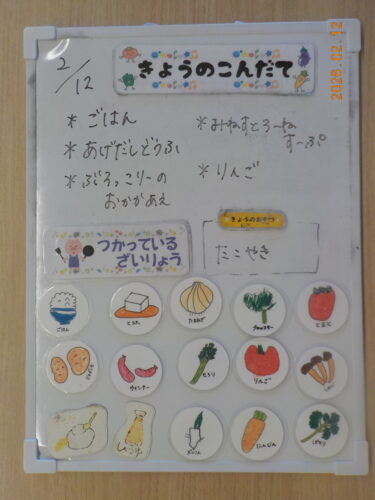 2026.02.12
2/12
きょうのこんだて
* ごはん
* あげだしどうふ
* ぶろっこりーの
おかかあえ
* みねすとろーね
すーぷ
* りんご
つかっている
ざいりょう
きょうのおやつ
たこやき
ごはん
とうふ
たまねぎ
ブロッコリー
とまと
ウインナー
せろり
りんご
だいこん
にんじん
ぱせり